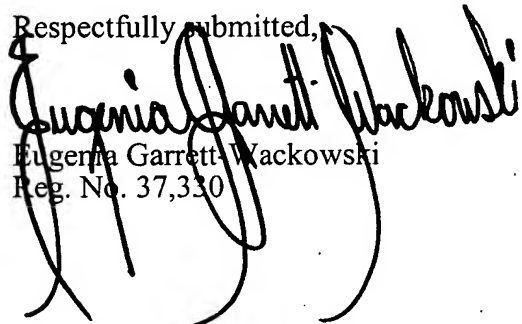 Respectfully submitted,
Eugenia Garrett Wackowski
Eugenia Garrett-Wackowski
Reg. No. 37,330